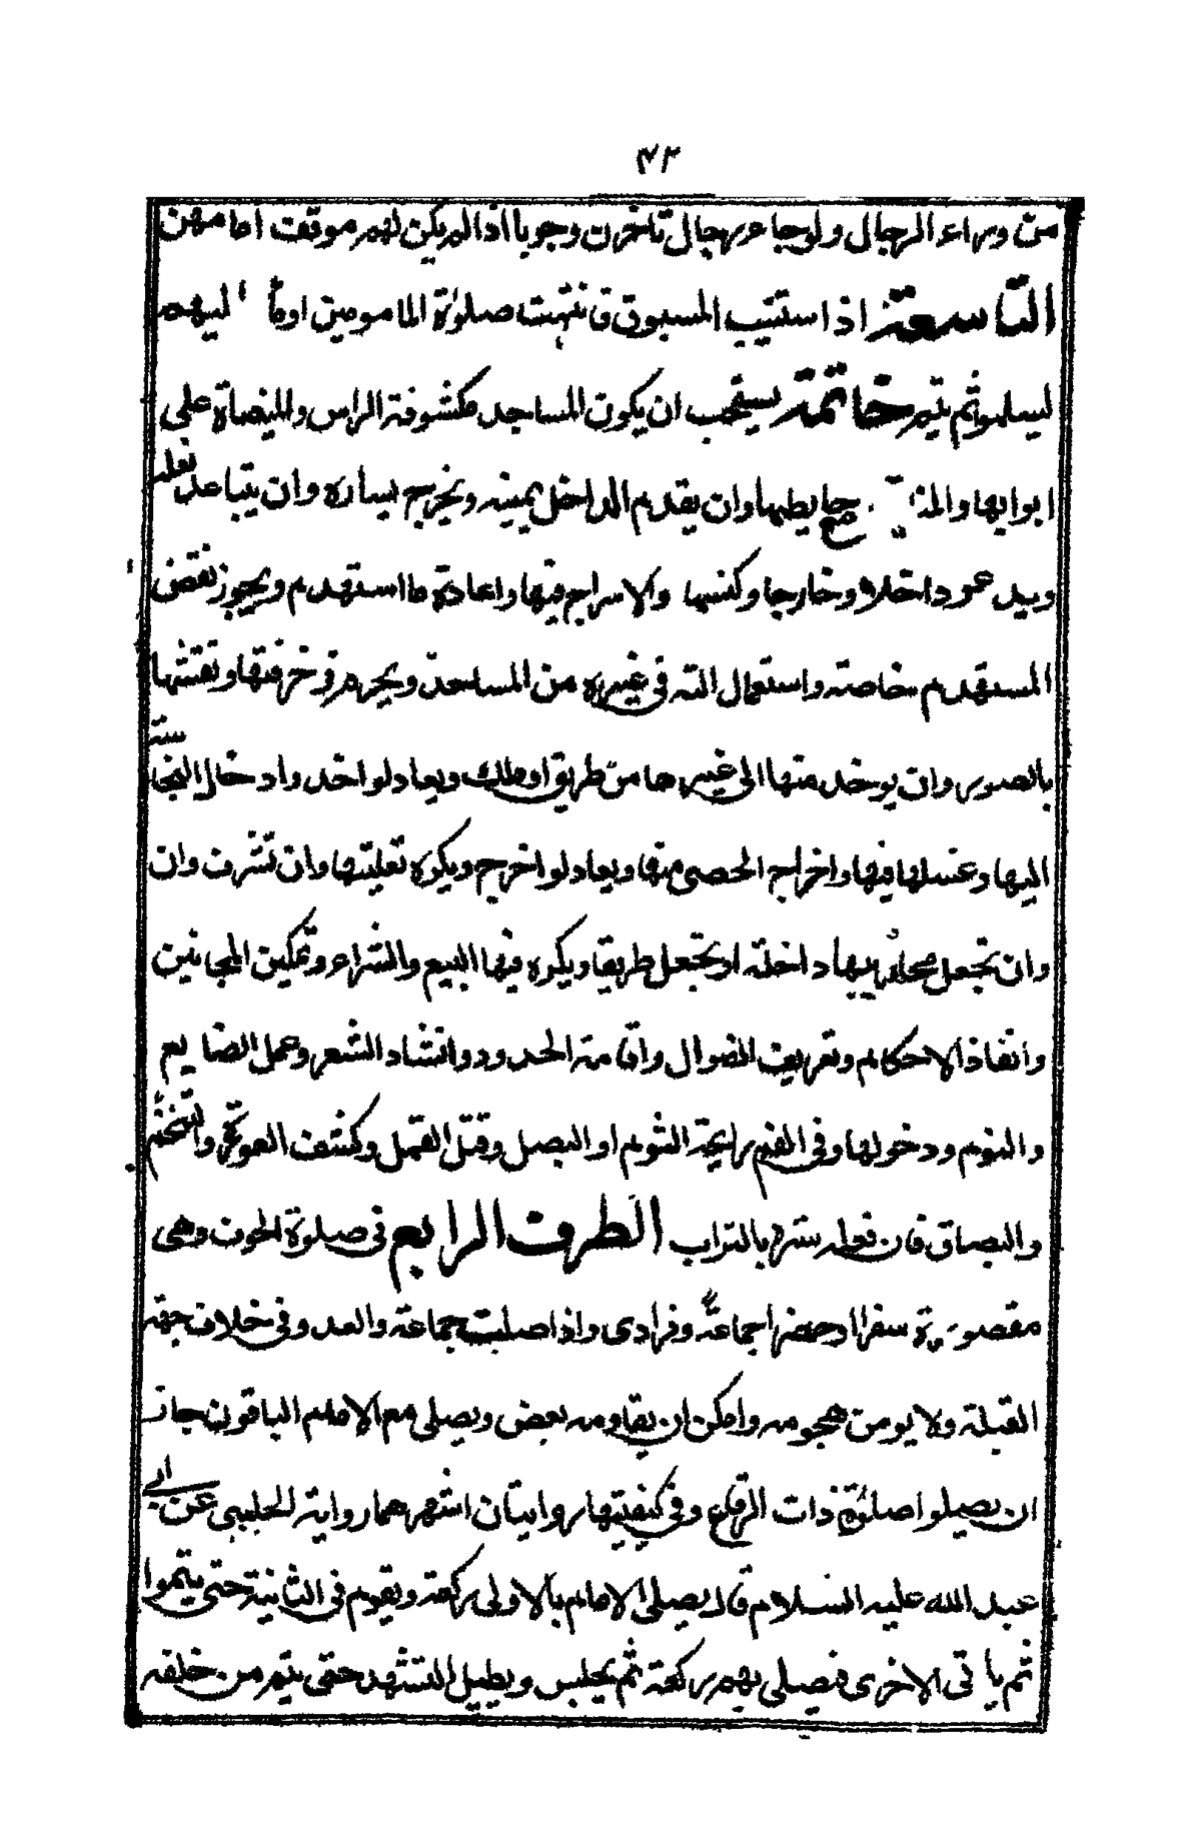 ۴۲
من وراء الرجال ولو جاء رجال تاخرن وجوبا اذا لم يكن لهم موقف امامهن
التاسعة اذا استنيب المسبوق فانتهت صلوة المامومين اوما ليهم
ليسلموا ثم يتم خاتمة يستحب ان يكون المساجد مكشوفة الراس والميضاة على
ابوابها والمنا مع حايطها وان يقدم الداخل يمينه ويخرج يساره وان يتباعد نعله
ويدعو داخلا وخارجا وكنسها والاسراج فيها واعادة ما استهدم ويجوز نقض
المستهدم خاصة واستعمال الته في غيره من المساجد ويحرم زخرفتها ونقشها
بالصور وان يوخذ منها الى غيرها من طريق او ملك ويعاد لو اخذ وادخال النجاسة
اليها وغسلها فيها واخراج الحصى منها ويعاد لو اخرج ويكره تعليتها وان تشرف وان
وان تجعل محاريبها داخلة او تجعل طريقا ويكره فيها البيع والشراء وتمكين المجانين
وانفاذ الاحكام وتعريف الضوال واقامة الحدود وانشاد الشعر وعمل الصنايع
والنوم ودخولها وفي الفم رايحة الثوم او البصل وقتل القمل وكشف العورة والتنخم
والبصاق فان فعله ستره بالتراب الطرف الرابع في صلوة الخوف وهي
مقصورة سفرا وحضرا جماعة وفرادى واذا صليت جماعة والعدو في خلاف جهة
القبلة ولا يومن هجومه وامكن ان يقاومه بعض ويصلي مع الامام الباقون جاز
ان يصلوا صلوة ذات الرقاع وفي كيفيتها روايتان اشهرهما رواية الحلبي عن ابي
عبد الله عليه السلام قال يصلي الامام بالاولى ركعة ويقوم في الثانية حتى يتموا
ثم ياتى الاخرى فيصلي بهم ركعة ثم يجلس ويطيل التشهد حتى يتم من خلفه